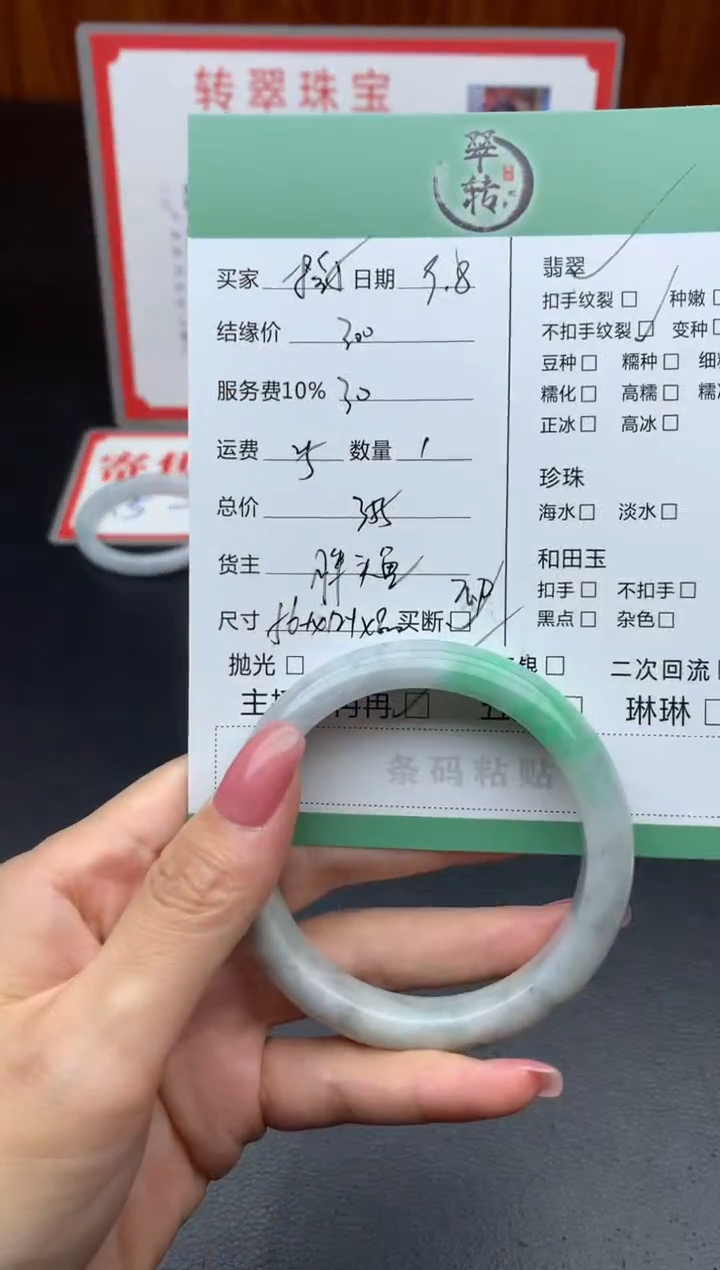 转翠珠宝
翠
转
买家 日期 5.8
结缘价 300
服务费10% 30
运费 数量 1
总价
货主 胖头鱼
尺寸 买断□
抛光□ 银□ 二次回流
主 冉冉□ 琳琳□
条码粘贴
翡翠
扣手纹裂□ 种嫩□
不扣手纹裂□ 变种□
豆种□ 糯种□ 细
糯化□ 高糯□ 糯
正冰□ 高冰□
珍珠
海水□ 淡水□
和田玉
扣手□ 不扣手□
黑点□ 杂色□